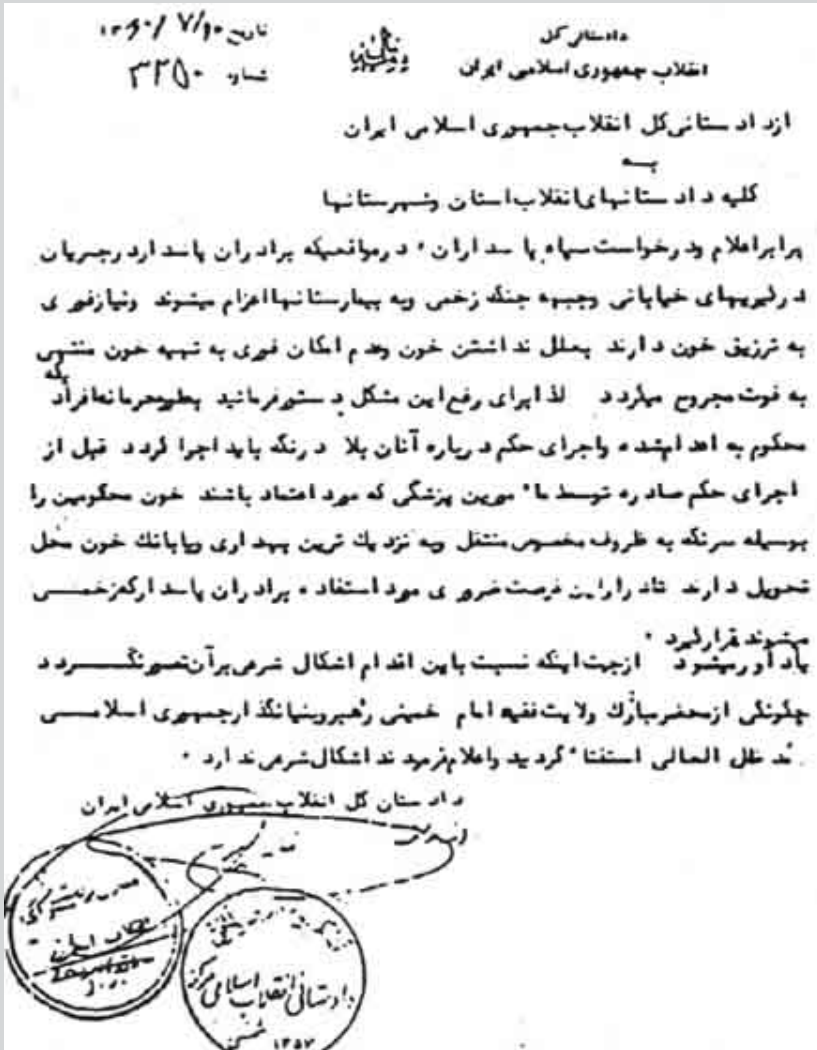 دادستانی کل
انقلاب جمهوری اسلامی ایران
تاریخ ۱۳۶۰/۷/۱۰
شماره ۳۲۵۰
از دادستانی کل انقلاب جمهوری اسلامی ایران
به
کلیه دادستانیهای انقلاب استان و شهرستانها
برابر اعلام و درخواست سپاه پاسداران ٠ در مواقعیکه برادران پاسدار در جریان
درگیریهای خیابانی و جبهه جنگ زخمی و به بیمارستانها اعزام میشوند و نیاز فوری
به تزریق خون دارند بعلل نداشتن خون و عدم امکان فوری به تهیه خون منتهی
به فوت مجروح میگردد لذا برای رفع این مشکل دستور فرمائید بطور محرمانه افرادیکه
محکوم به اعدام شده و اجرای حکم درباره آنان بلادرنگ باید اجرا گردد قبل از
اجرای حکم صادره توسط مأمورین پزشکی که مورد اعتماد باشند خون محکومین را
بوسیله سرنگ به ظروف مخصوص منتقل و به نزدیک ترین بهداری و یا بانک خون محل
تحویل دارند تا در این فرصت ضروری مورد استفاده برادران پاسدار که زخمی
میشوند قرار گیرد ٠
یادآور میشود از جهت اینکه نسبت باین اقدام اشکال شرعی بر آن تصور نگردد
چگونگی از محضر مبارک ولایت فقیه امام خمینی رهبر و بنیانگذار جمهوری اسلامی
مد ظله العالی استفتاء گردید و اعلام فرمودند اشکال شرعی ندارد ٠
دادستان کل انقلاب جمهوری اسلامی ایران
دادستانی انقلاب اسلامی مرکز
۱۳۵۷